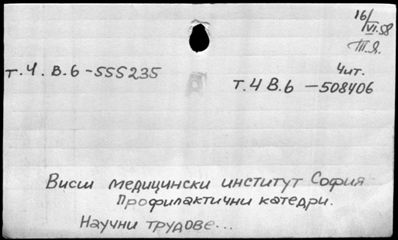 16/VI.58
Т.Я.
т.4. В.6 – 555235
Чит.
т.4 В.6 – 508406
Висш медицински институт София
Профилактични катедри.
Научни трудове...